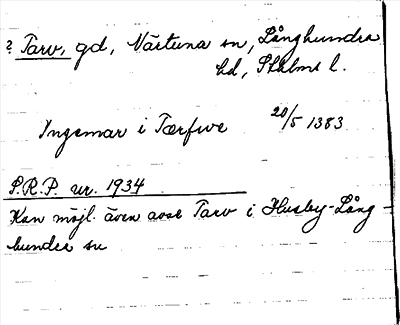 ? Tarv, gd, Närtuna sn, Långhundra
hd, Sthlms l.
Yngemar i Tærfwe 20/5 1383
P.R.P. nr. 1934
Kan möjl. även avse Tarv i Husby-Lång-
hundra sn